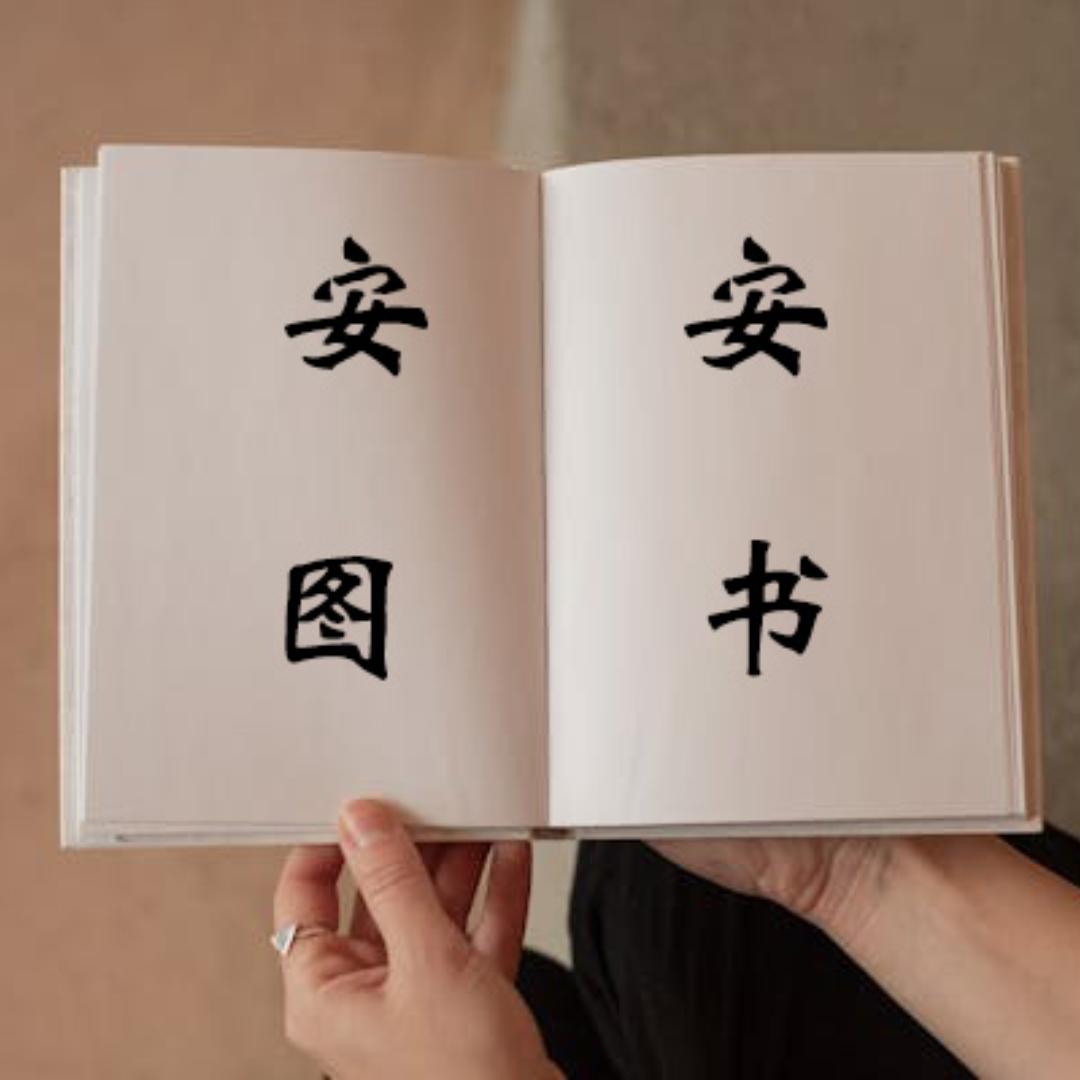 安 安
图 书